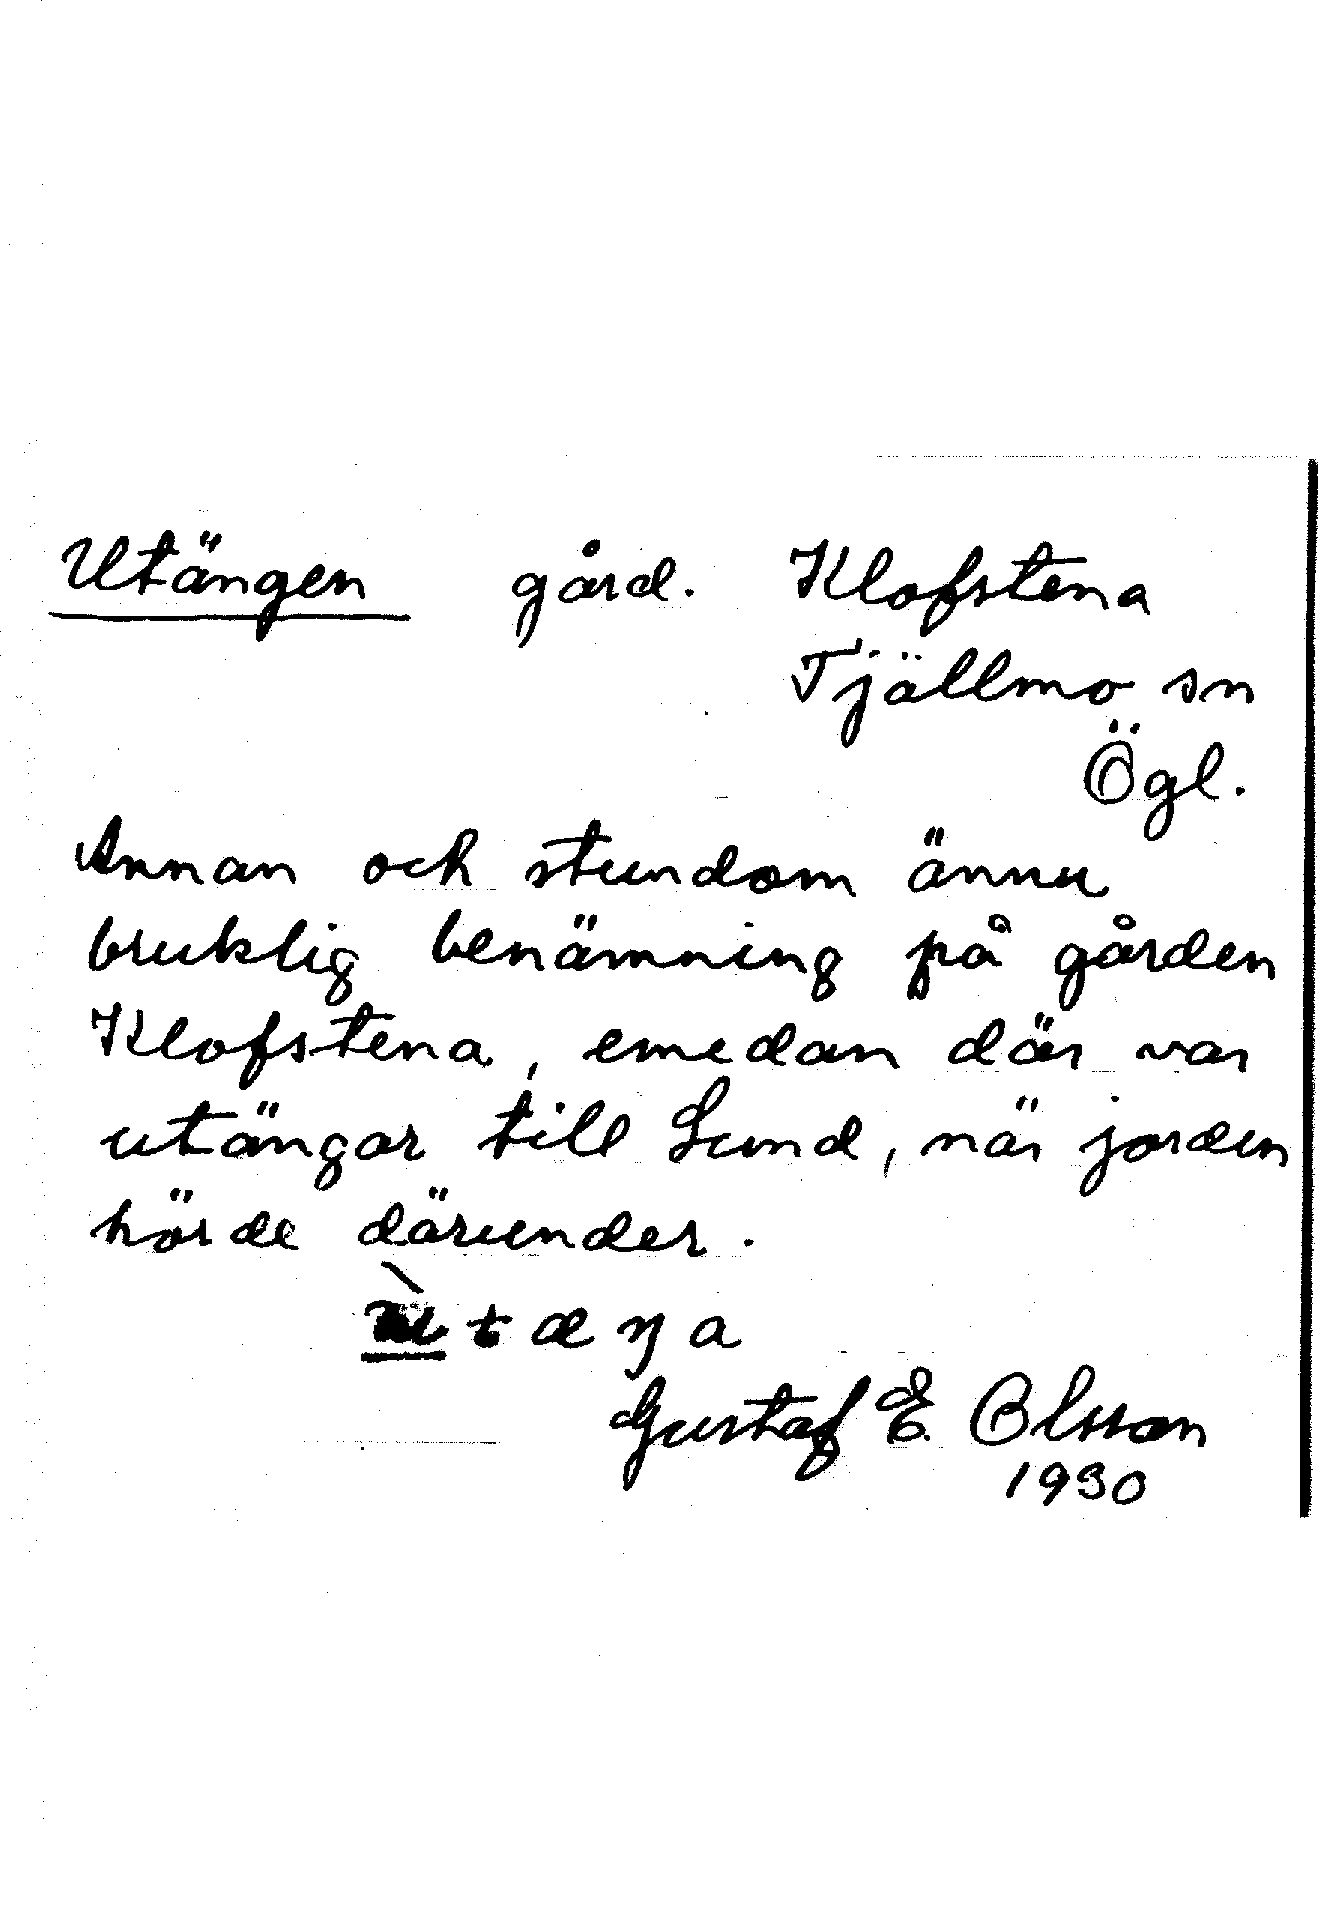 Utängen gård. Klofstena
Tjällmo sn
Ögl.
Annan och stundom ännu
bruklig benämning på gården
Klofstena, emedan där var
utängar till Lund, när jorden
hörde därunder.
ù t æ ŋ a
Gustaf E. Olsson
1930